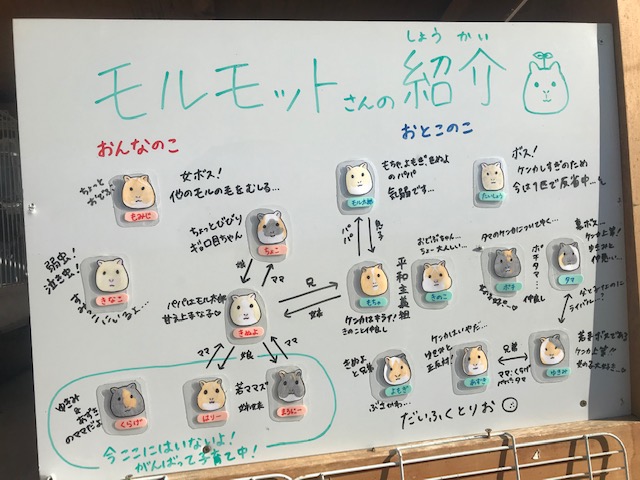 しょうかい
モルモットさんの紹介
おんなのこ
おとこのこ
ちょっと
もみじ
女ボス!
他のモルの毛をむしる…
ちょっとビビリ
ギョロ目ちゃん♡
ちょこ
弱虫!
泣き虫!
きなこ
娘
ママ
パパはモル太郎
甘え上手な子♡
きぬよ
兄
妹
ママ
娘
ママ
ゆきみ
&
あずき
のママだよ
くらげ
はりー
若ママズ
まろにー
今ここにはいないよ!
がんばって子育て中!
もちゃ、よもぎ、きぬよ
のパパ
気弱です…
モル太郎
パパ
息子
もちゃ
ケンカはもうヤ!
きのこと仲良し
平和主義組
おとぼけちゃん…
ちょー大人しい…
きのこ
ボス!
ケンカしすぎのため
今は1匹で反省中…
たいしょう
タマのケンカについてゆく…
ポチ
ポチタマ…
仲良し
タマ
裏ボス…
ケンカ上等!
ゆきみと
仲悪い…
ライバル…?
きぬよ
と兄弟
よもぎ
ぶさかわ…
ケンカはいやだ…
ゆきみと
正反対!
あずき
兄弟
ママ:くらげ
パパ:タマ
ゆきみ
若手ボスである
ケンカ上等!!
女の子大好き…♡
だいふくとりお